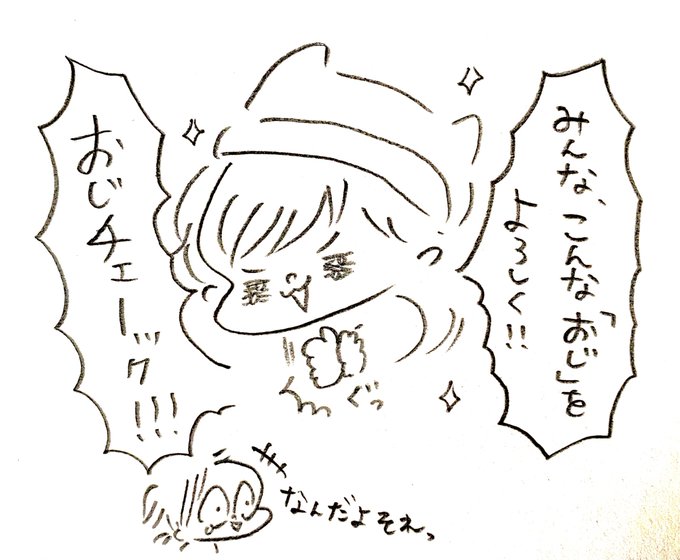 みんな、こんな「おじ」を
よろしく!!
おじチェーック!!!
ぐっ
なんだよそれっ